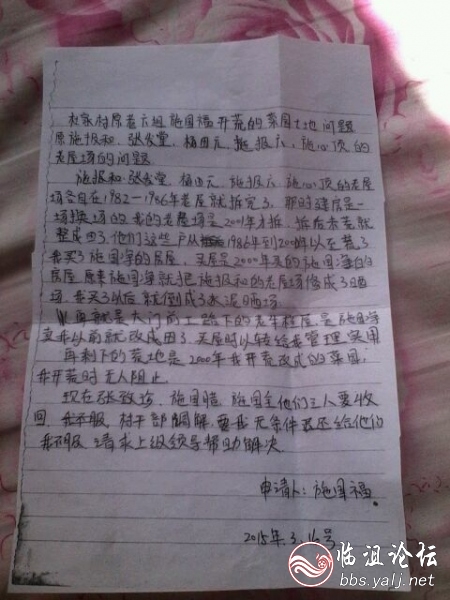 杜家村原老六组施国福开荒的菜园土地问题
原施报和、张发堂、杨田元、施报六、施心顶的
老屋场的问题
施报和、张发堂、杨田元、施报六、施心顶的老屋
场各自在1982—1986年老屋就拆完了,那时建房是一
场换场的,我的老屋场是2001年才拆,拆后未荒就
整成田了,他们这些户从1986年到2000年以至荒了
我买了施国学的房屋,买屋是2000年买的施国海的
房屋,原来施国海就把施报和的老屋场修成了晒
场,我买了以后就倒成了水泥晒场
再就是大门前工路下的老牛栏屋是施国海
支书以前就改成田了,买屋时以转给我管理实用
再剩下的荒地是2000年我开荒改成的菜园
我开荒时无人阻止
现在张致珍、施国皓、施国全他们三人要收
回,我不服,村干部调解,要我无条件还给他们
我不服,请求上级领导帮助解决
申请人:施国福
2015年.3.16号
临沮论坛
bbs.yalj.net